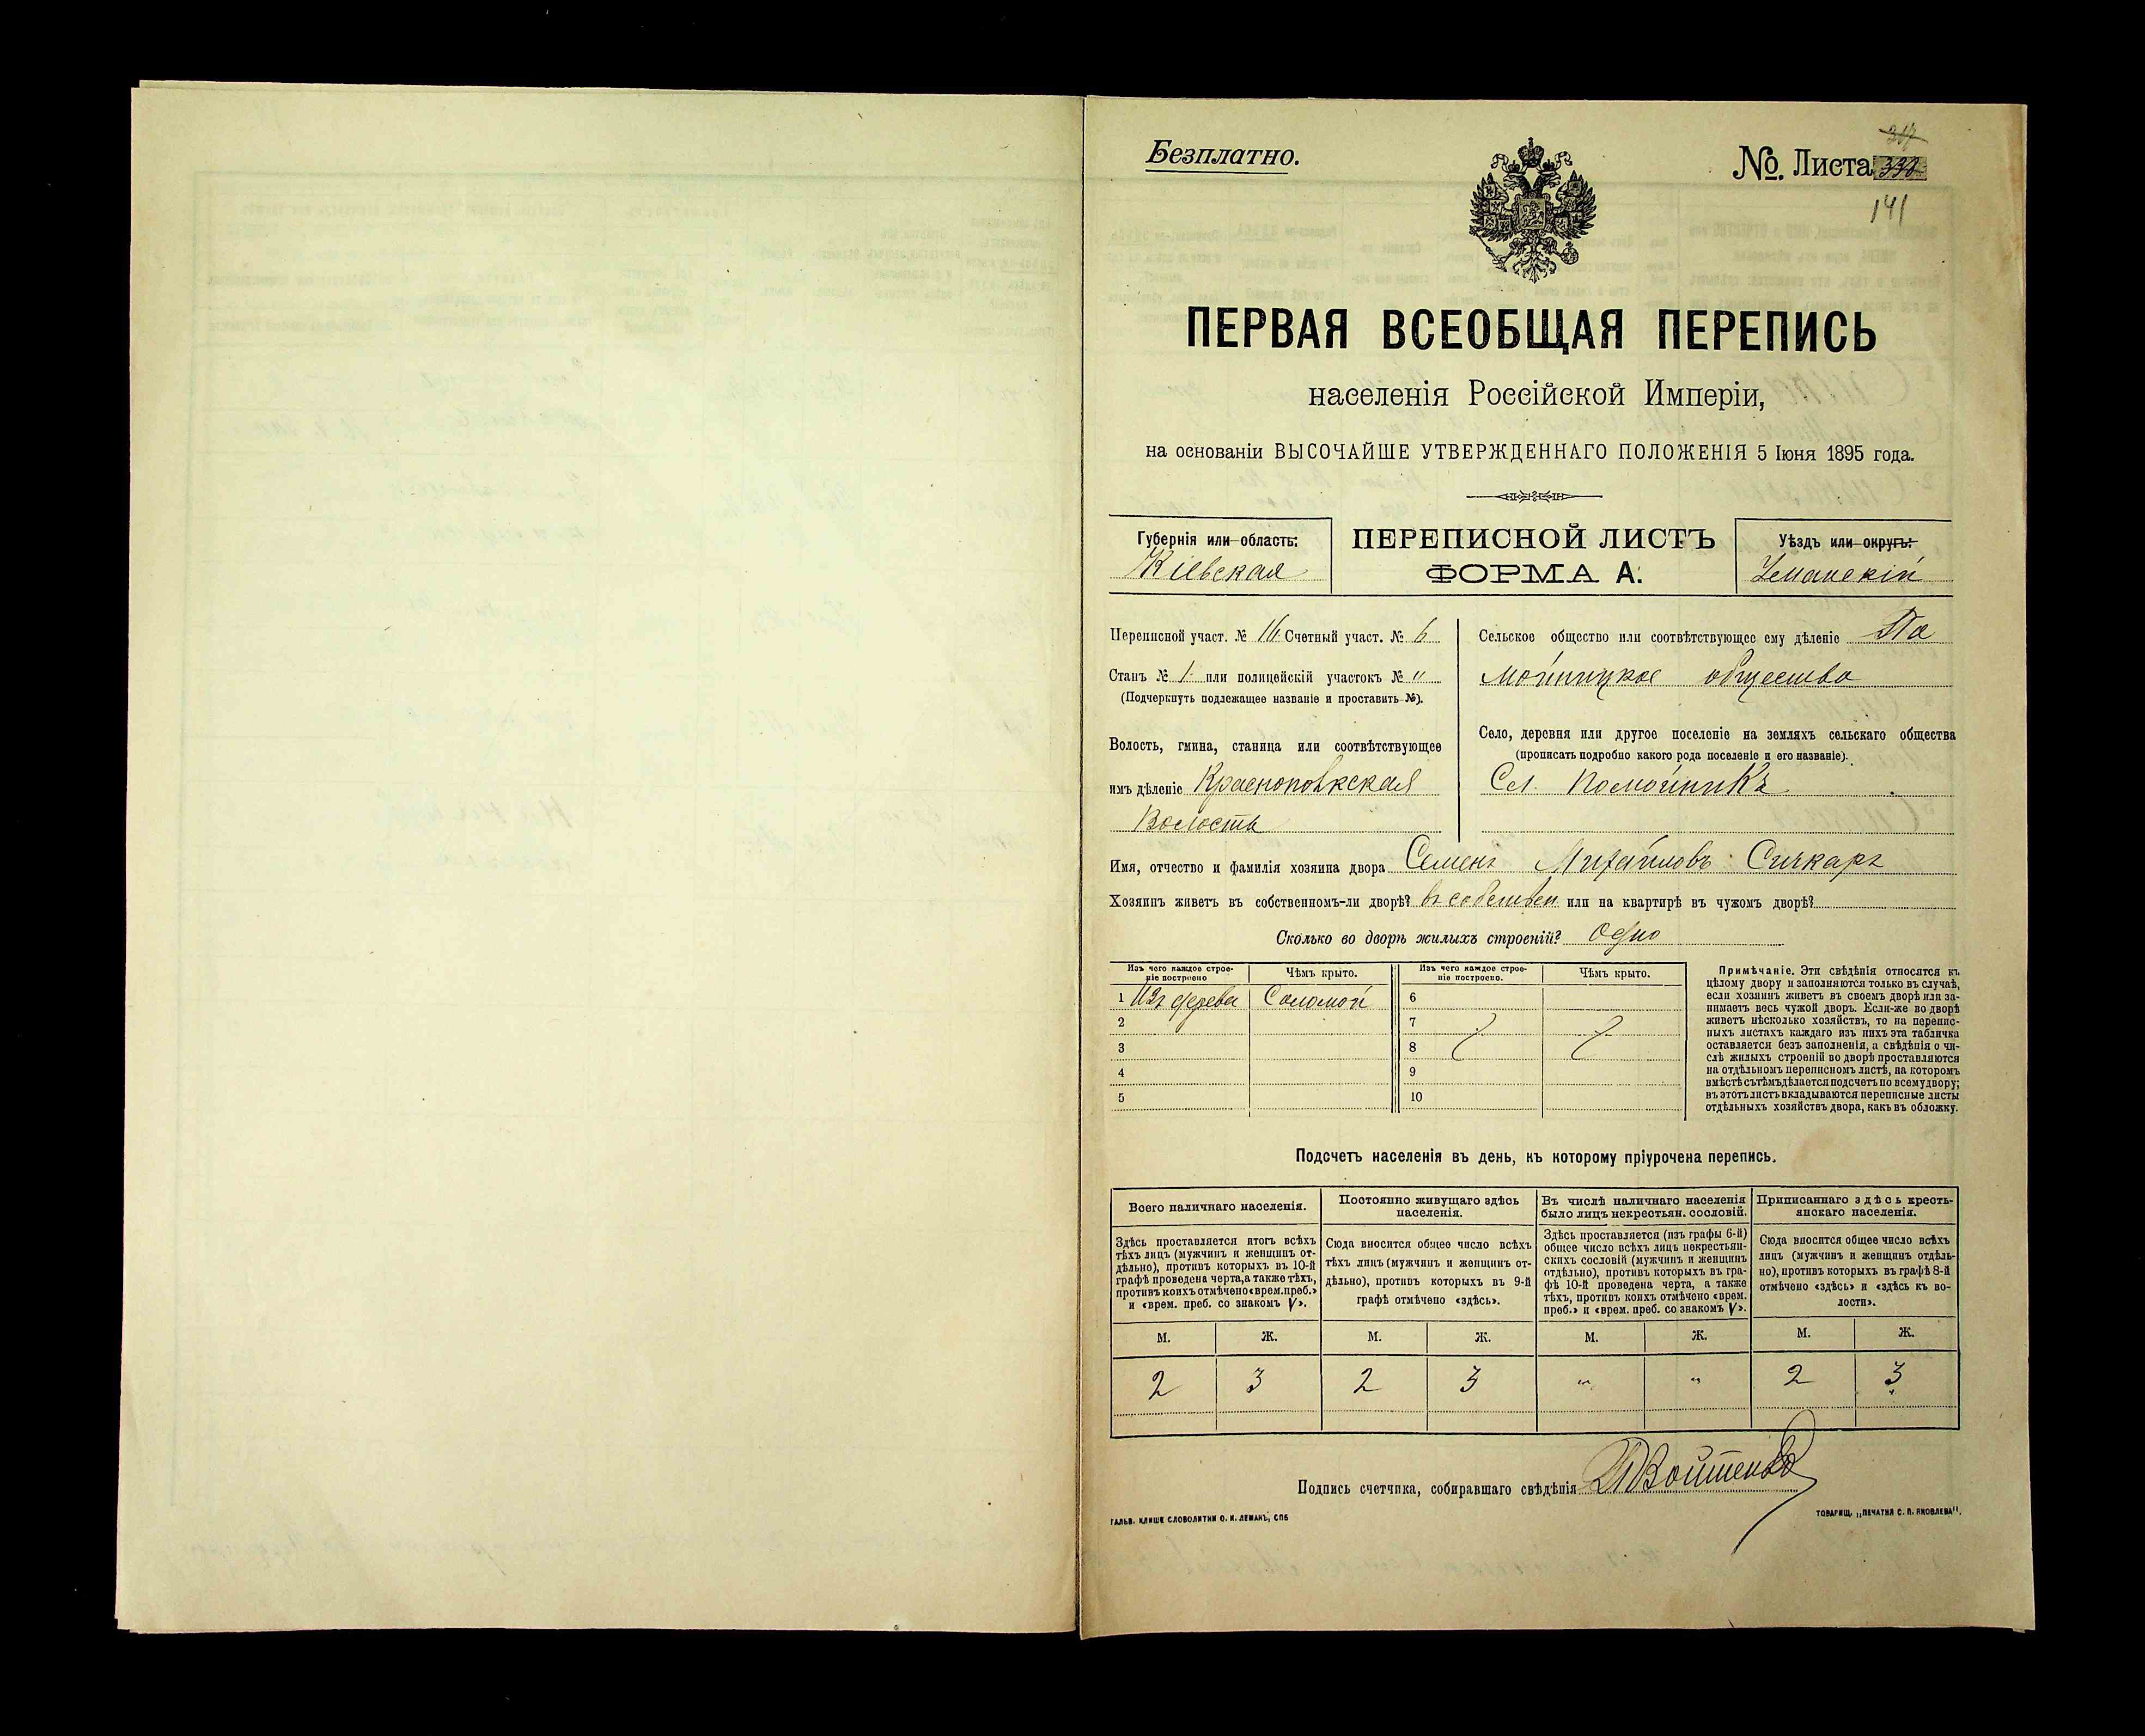 Безплатно.
№. Листа 330
317
141
ПЕРВАЯ ВСЕОБЩАЯ ПЕРЕПИСЬ
населенія Россійской Имперіи,
на основаніи ВЫСОЧАЙШЕ УТВЕРЖДЕННАГО ПОЛОЖЕНІЯ 5 Іюня 1895 года.
Губернія или область:
Кіевская
ПЕРЕПИСНОЙ ЛИСТЪ
ФОРМА А.
Уѣздъ или округъ:
Уманскій
Переписной участ. № 16 Счетный участ. № 6
Станъ № 1. или полицейскій участокъ № "
(Подчеркнуть подлежащее названіе и проставить №).
Волость, гмина, станица или соотвѣтствующее
имъ дѣленіе Краснополкская
Волость
Сельское общество или соотвѣтствующее ему дѣленіе По
мойницкое общество
Село, деревня или другое поселеніе на земляхъ сельскаго общества
(прописать подробно какого рода поселеніе и его названіе).
Сел. Помойникъ
Имя, отчество и фамилія хозяина двора Семенъ Михайловъ Сичкаръ
Хозяинъ живетъ въ собственномъ-ли дворѣ? въ собствен или на квартирѣ въ чужомъ дворѣ?
Сколько во дворѣ жилыхъ строеній? Одно
Изъ чего каждое строе-
ніе построено
Чѣмъ крыто.
Изъ чего каждое строе-
ніе построено.
Чѣмъ крыто.
1 Изъ дерева Соломой 6
2 7
3 8
4 9
5 10
Примѣчаніе. Эти свѣдѣнія относятся къ
цѣлому двору и заполняются только въ случаѣ,
если хозяинъ живетъ въ своемъ дворѣ или за-
нимаетъ весь чужой дворъ. Если-же во дворѣ
живетъ нѣсколько хозяйствъ, то на перепис-
ныхъ листахъ каждаго изъ нихъ эта табличка
оставляется безъ заполненія, а свѣдѣнія о чи-
слѣ жилыхъ строеній во дворѣ проставляются
на отдѣльномъ переписномъ листѣ, на которомъ
вмѣстѣ съ тѣмъ дѣлается подсчетъ по всему двору;
въ этотъ листъ вкладываются переписные листы
отдѣльныхъ хозяйствъ двора, какъ въ обложку.
Подсчетъ населенія въ день, къ которому пріурочена перепись.
Всего наличнаго населенія.
Здѣсь проставляется итогъ всѣхъ
тѣхъ лицъ (мужчинъ и женщинъ от-
дѣльно), противъ которыхъ въ 10-й
графѣ проведена черта, а также тѣхъ,
противъ коихъ отмѣчено «врем. преб.»
и «врем. преб. со знакомъ V».
Постоянно живущаго здѣсь
населенія.
Сюда вносится общее число всѣхъ
тѣхъ лицъ (мужчинъ и женщинъ от-
дѣльно), противъ которыхъ въ 9-й
графѣ отмѣчено «здѣсь».
Въ числѣ наличнаго населенія
было лицъ некрестьян. сословій.
Здѣсь проставляется (изъ графы 6-й)
общее число всѣхъ лицъ некрестьян-
скихъ сословій (мужчинъ и женщинъ
отдѣльно), противъ которыхъ въ гра-
фѣ 10-й проведена черта, а также
тѣхъ, противъ коихъ отмѣчено «врем.
преб.» и «врем. преб. со знакомъ V».
Приписаннаго здѣсь кресть-
янскаго населенія.
Сюда вносится общее число всѣхъ
лицъ (мужчинъ и женщинъ отдѣль-
но), противъ которыхъ въ графѣ 8-й
отмѣчено «здѣсь» и «здѣсь къ во-
лости».
М. Ж. М. Ж. М. Ж. М. Ж.
2 3 2 3 " " 2 3
Подпись счетчика, собиравшаго свѣдѣнія Войтенко
ГАЛЬВ. КЛИШЕ СЛОВОЛИТНИ О. И. ЛЕМАНЪ, СПБ
ТОВАРИЩ. „ПЕЧАТНЯ С. П. ЯКОВЛЕВА".